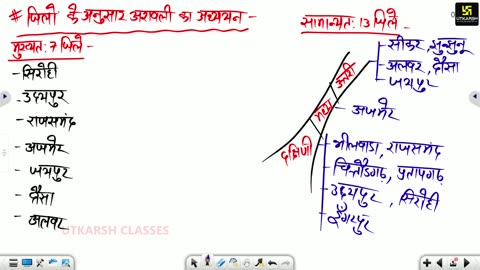 # जिलो के अनुसार अरावली का अध्ययन -
सामान्यतः 13 जिले -
UTKARSH
मुख्यतः 7 जिले -
- सिरोही
- उदयपुर
- राजसमंद
- अजमेर
- जयपुर
- दौसा
- अलवर
सीकर, झुन्झुनू
अलवर, दौसा
जयपुर
उत्तरी
मध्य
दक्षिणी
अजमेर
भीलवाडा, राजसमंद
चित्तौडगढ़, प्रतापगढ़
उदयपुर, सिरोही
डूँगरपुर
UTKARSH CLASSES